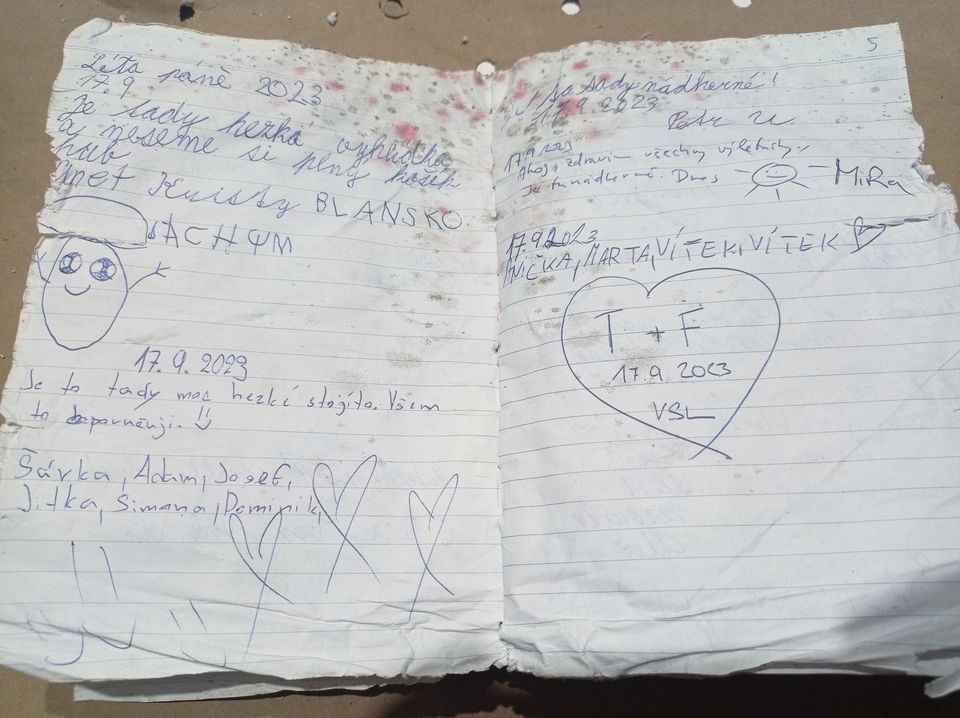 Léta páně 2023
17.9
Je tady hezká vyhlídka
a neseme si plný košík
hub
BLANSKO
JÁCHYM
17.9.2023
Je to tady moc hezké stojíto. Všem
to
Šárka, Adam, Josef,
Jitka, Simona, Dominik,
5
Je to tady nádherné!
17.9 2023
Petr
17.9.2023
Ahoj, zdravím všechny výletníky,
Je tu nádherně. Dnes
MiRa
17.9.2023
NIČKA, MARTA, VÍTEK, VÍTEK
T + F
17.9. 2023
VSL